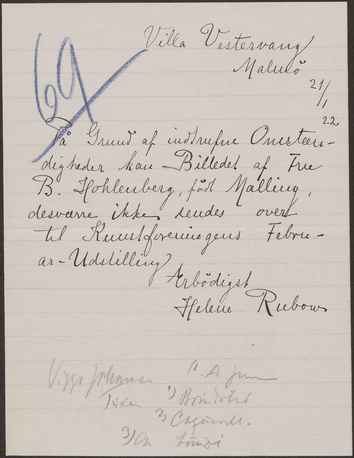 69
Villa Vestervang
Malmö
21/1
22
På Grund af indtrufne Omstæn-
digheder kan Billedet af Fru
B. Kohlenberg, født Malling,
desværre ikke sendes over
til Kunstforeningens Febru-
ar-Udstilling
Ærbödigst
Helene Rubow
Viggo Johansen